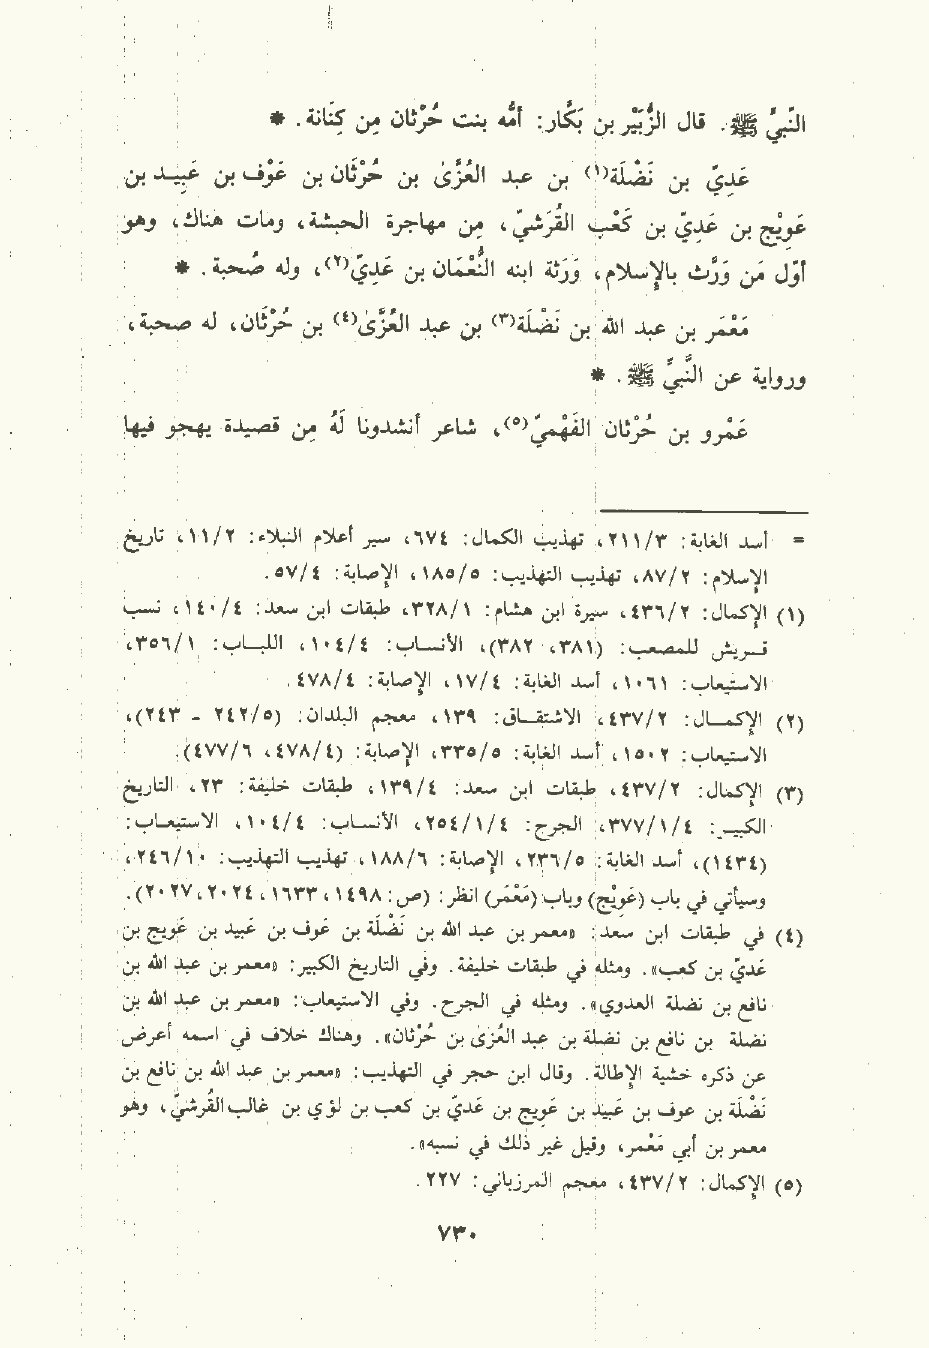 النَّبيِّ ﷺ. قال الزُّبَيْر بن بَكَّار: أمُّه بنت حُرْثان مِن كِنَانة. *
عَدِيّ بن نَضْلَة(١) بن عبد العُزَّىٰ بن حُرْثَان بن عَوْف بن عَبِيد بن
عَوِيْج بن عَدِيّ بن كَعْب القُرَشيّ، مِن مهاجرة الحبشة، ومات هناك، وهو
أوّل مَن وَرَّث بالإسلام، وَرَثة ابنه النُّعْمَان بن عَدِيّ(٢)، وله صُحبة. *
مَعْمَر بن عبد الله بن نَضْلَة(٣) بن عبد العُزَّىٰ(٤) بن حُرْثَان، له صحبة،
ورواية عن النَّبيِّ ﷺ. *
عَمْرو بن حُرْثان الفَهْميّ(٥)، شاعر أنشدونا لَهُ مِن قصيدة يهجو فيها
= أسد الغابة: ٢١١/٣، تهذيب الكمال: ٦٧٤، سير أعلام النبلاء: ١١/٢، تاريخ
الإسلام: ٨٧/٢، تهذيب التهذيب: ١٨٥/٥، الإصابة: ٥٧/٤.
(١) الإكمال: ٤٣٦/٢، سيرة ابن هشام: ٣٢٨/١، طبقات ابن سعد: ١٤٠/٤، نسب
قريش للمصعب: (٣٨١، ٣٨٢)، الأنساب: ١٠٤/٤، اللباب: ٣٥٦/١،
الاستيعاب: ١٠٦١، أسد الغابة: ١٧/٤، الإصابة: ٤٧٨/٤.
(٢) الإكمال: ٤٣٧/٢، الاشتقاق: ١٣٩، معجم البلدان: (٢٤٢/٥ - ٢٤٣)،
الاستيعاب: ١٥٠٢، أسد الغابة: ٣٣٥/٥، الإصابة: (٤٧٨/٤، ٤٧٧/٦).
(٣) الإكمال: ٤٣٧/٢، طبقات ابن سعد: ١٣٩/٤، طبقات خليفة: ٢٣، التاريخ
الكبير: ٣٧٧/١/٤، الجرح: ٢٥٤/١/٤، الأنساب: ١٠٤/٤، الاستيعاب:
(١٤٣٤)، أسد الغابة: ٢٣٦/٥، الإصابة: ١٨٨/٦، تهذيب التهذيب: ٢٤٦/١٠،
وسيأتي في باب (عَوِيْج) وباب: (مَعْمَر) انظر: (ص: ١٤٩٨، ١٦٣٣، ٢٠٢٤، ٢٠٢٧).
(٤) في طبقات ابن سعد: «معمر بن عبد الله بن نَضْلَة بن عَوف بن عَبيد بن عَويج بن
عَديّ بن كعب». ومثله في طبقات خليفة. وفي التاريخ الكبير: «معمر بن عبد الله بن
نافع بن نضلة العدوي». ومثله في الجرح. وفي الاستيعاب: «معمر بن عبد الله بن
نضلة بن نافع بن نضلة بن عبد العُزىٰ بن حُرْثان». وهناك خلاف في اسمه أعرض
عن ذكره خشية الإطالة. وقال ابن حجر في التهذيب: «معمر بن عبد الله بن نافع بن
نَضْلَة بن عوف بن عَبيد بن عَويج بن عَديّ بن كعب بن لؤي بن غالب القُرشيّ، وهو
معمر بن أبي مَعْمر، وقيل غير ذلك في نسبه».
(٥) الإكمال: ٤٣٧/٢، معجم المرزباني: ٢٢٧.
٧٣٠